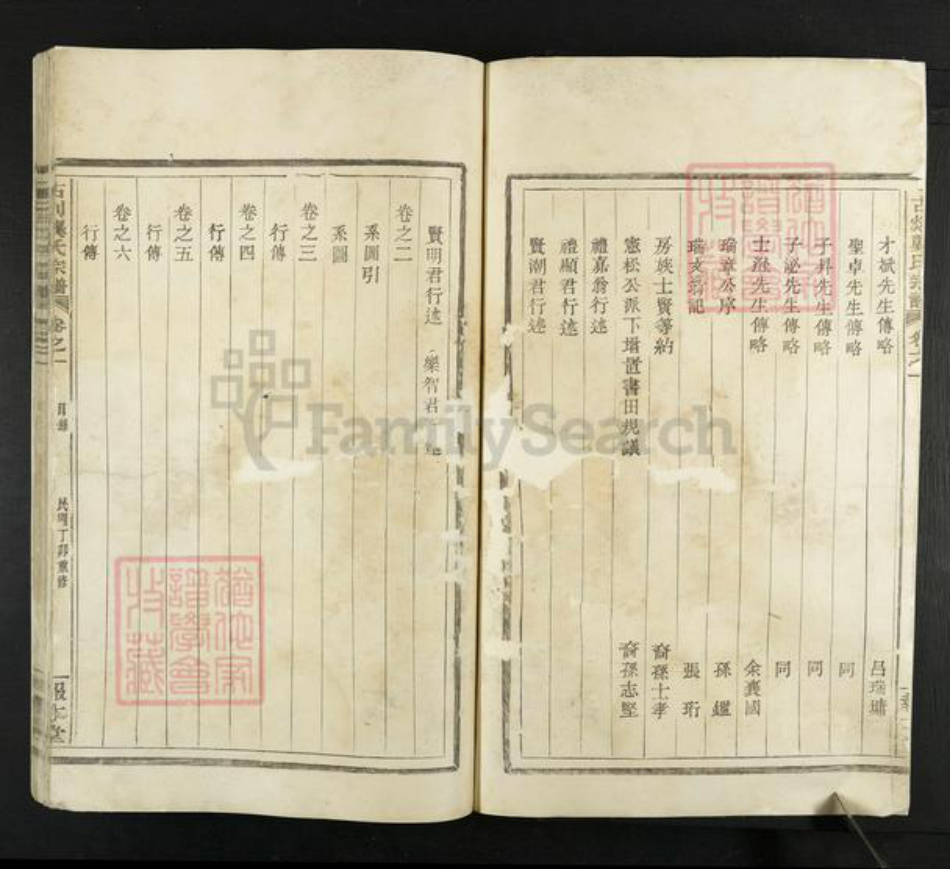 才斌先生傳略 呂瑞墉
聖卓先生傳略 同
子昇先生傳略 同
子泌先生傳略 同
士遜先生傳略 余襄國
瑜章公序 孫鑑
瑞 翁記 張珩
房族士賢等約 裔孫士孝
憲松公派下增置書田規議 裔孫志堅
禮嘉翁行述
禮順君行述
賢潮君行述
賢明君行述 樂智君 述
卷之二
系圖引
系圖
卷之三
行傳
卷之四
行傳
卷之五
行傳
卷之六
行傳
氏宗譜 卷之一 目錄 民國丁卯重修 報本堂
猶他家譜學會收藏
猶他家譜學會收藏
FamilySearch